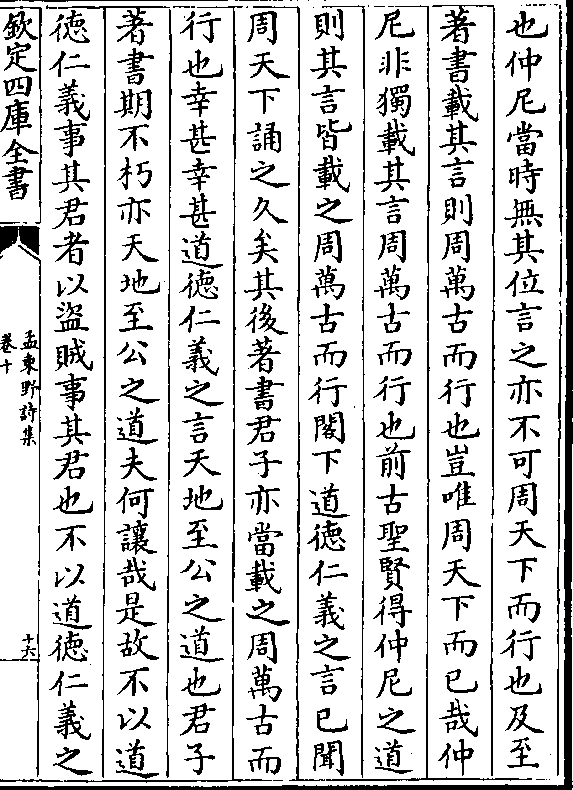 也仲尼當時無其位言之亦不可周天下而行也及至
著書載其言則周萬古而行也豈唯周天下而已哉仲
尼非獨載其言周萬古而行也前古聖賢得仲尼之道
則其言皆載之周萬古而行閣下道德仁義之言已聞
周天下誦之久矣其後著書君子亦當載之周萬古而
行也幸甚幸甚道德仁義之言天地至公之道也君子
著書期不朽亦天地至公之道夫何讓哉是故不以道
德仁義事其君者以盜賊事其君也不以道德仁義之
欽定四庫全書
孟東野詩集
卷十
十六